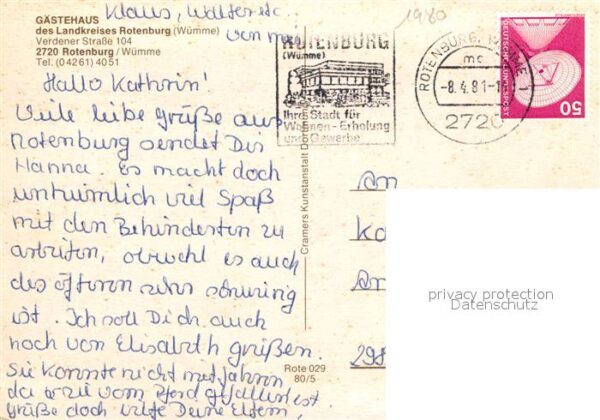 Klaus, Walter etc
von mir
1980
GÄSTEHAUS
des Landkreises Rotenburg (Wümme)
Verdener Straße 104
2720 Rotenburg / Wümme
Tel. (04261) 4051
Hallo Kathrin!
Viele liebe Grüße aus
Rotenburg sendet Dir
Hanna. Es macht doch
unheimlich viel Spaß
mit den Behinderten zu
arbeiten, obwohl es auch
des öfteren sehr schwierig
ist. Ich soll Dich auch
noch von Elisabeth grüßen.
Sie konnte nicht mitfahren
da sie vom Pferd gefallen ist
grüße doch bitte Deine Eltern,
ROTENBURG
(Wümme)
Ihre Stadt für
Wohnen - Erholung
und Gewerbe
ROTENBURG, WÜMME 1
mc
-8.4.81-1
2720
DEUTSCHE BUNDESPOST
50
Cramers Kunstanstalt Dortmund
An
298
Rote 029
80/5
privacy protection
Datenschutz